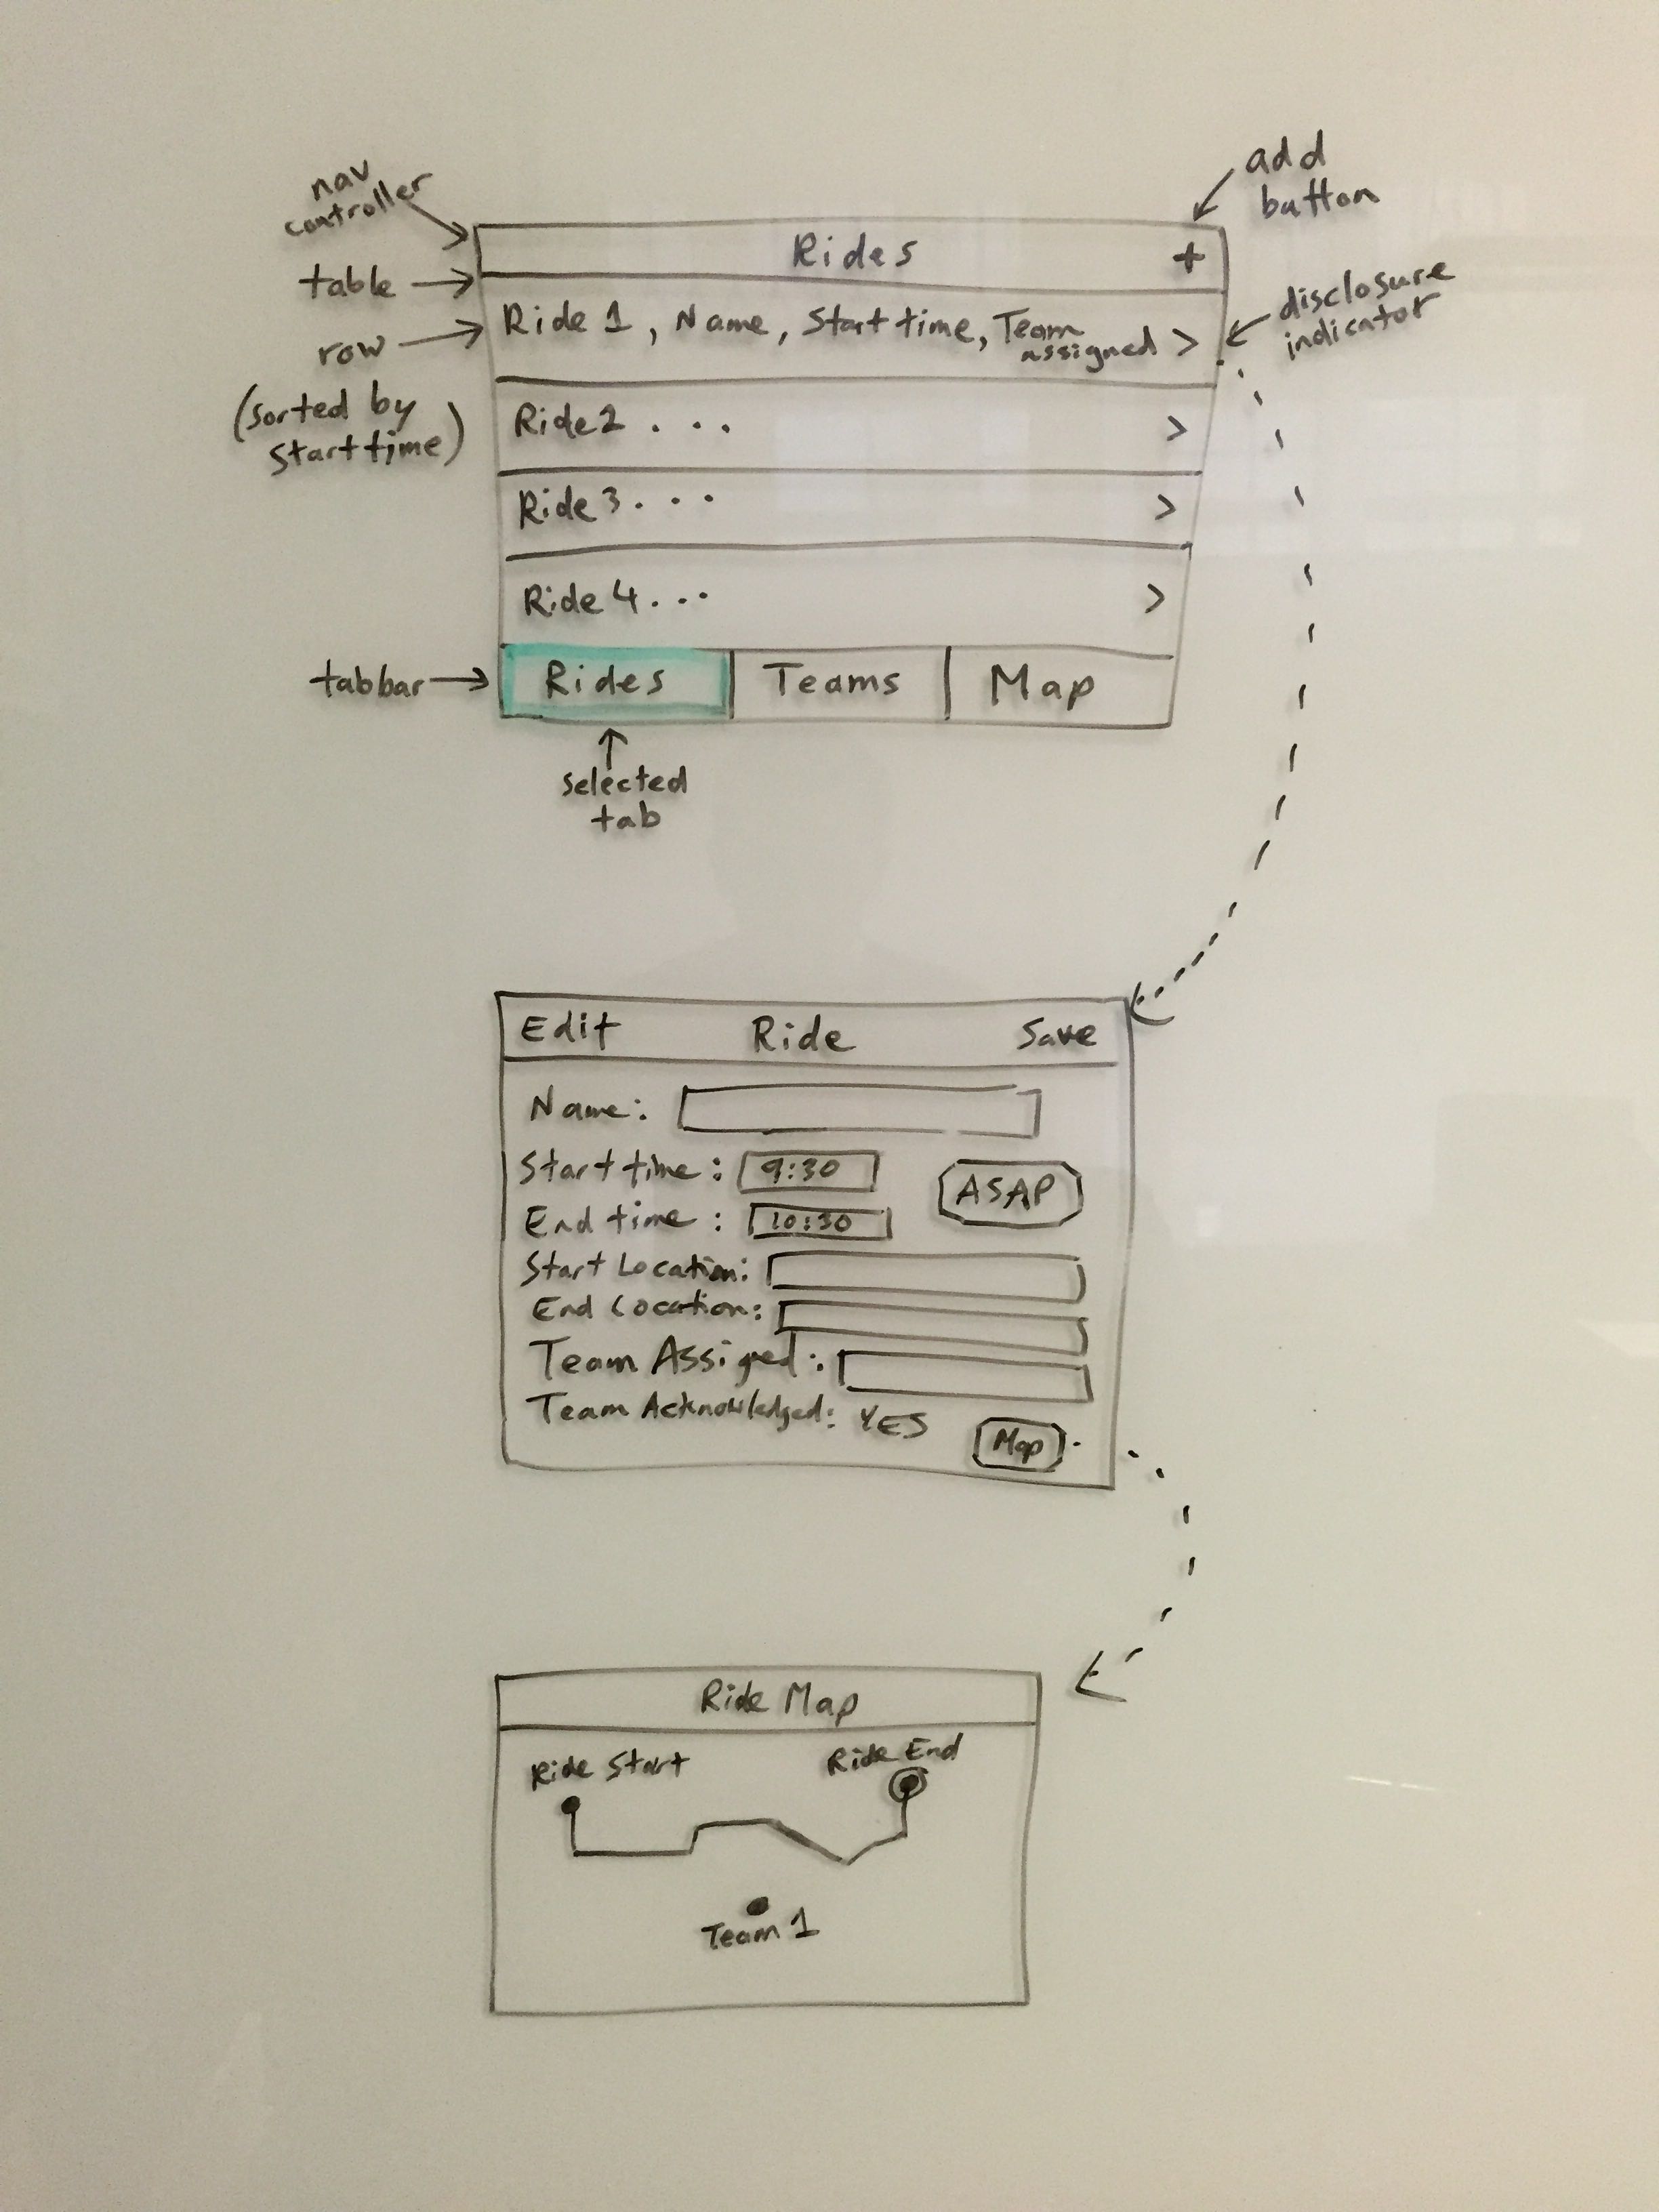 nav
controller
add
button
Rides +
table
disclosure
indicator
Ride 1, Name, Start time, Team
assigned >
row
(sorted by
start time)
Ride 2 . . . >
Ride 3 . . . >
Ride 4 . . . >
tabbar
Rides Teams Map
selected
tab
Edit Ride Save
Name:
Start time: 9:30
ASAP
End time: 10:30
Start Location:
End Location:
Team Assigned:
Team Acknowledged: YES
Map
Ride Map
Ride Start Ride End
Team 1